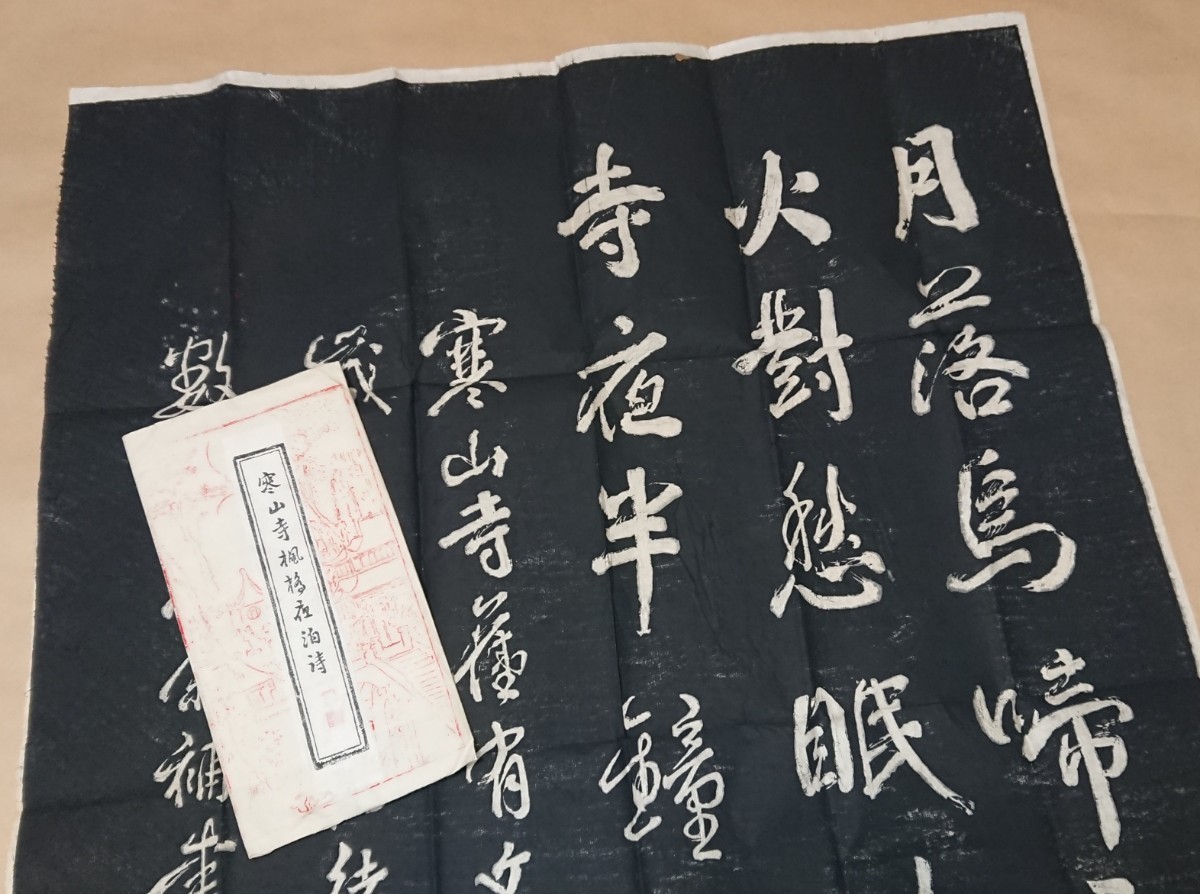 月落烏啼
火對愁眠
寺夜半鐘
寒山寺舊有文
數
補書
寒山寺楓橋夜泊詩